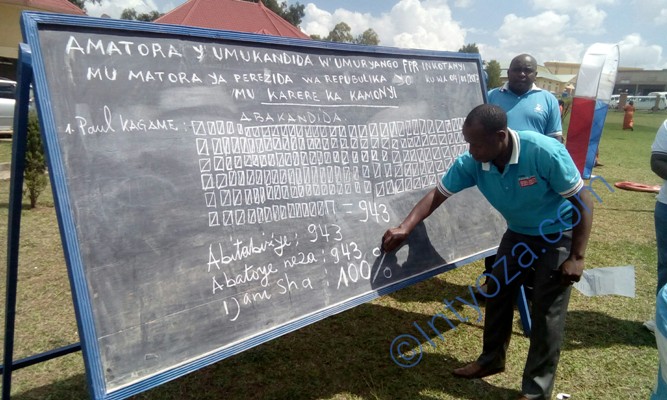 AMATORA Y'UMUKANDIDA W'UMURYANGO FPR INKOTANYI
MU MATORA YA PEREZIDA WA REPUBULIKA YO KU WA
MU KARERE KA KAMONYI
ABAKANDIDA
1. Paul KAGAME :
= 943
Abitabiriye : 943
Abatoye neza : 943
1) ani sha : 100%
©Intyoza.com